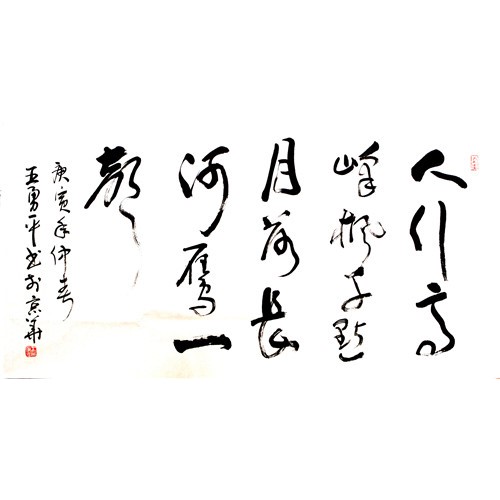 人行高
峰楓千點
月落長
河雁一
聲
庚寅年仲春
王勇平书於京華